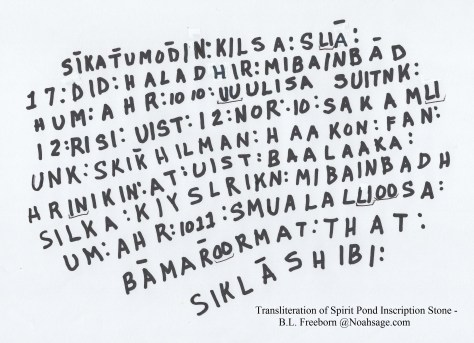 SĪKAT̄UMOD̄IN:KILSA:SLIĀ:
17:DID:HALADHIR:MIBAINBĀD
HUM:AHR:1010:UUULISA SUITNK:
12:RISI:UIST:12:NOR:10:SAKAMLI
UNK:SKIK̄HILMAN:HAAKON:FAN:
HRINIKIN:AT:UIST:BAALAAKA:
SILKA:KIYSLRIKN:MIBAINBADH
UM:AHR:1011:SMUALALLIOOSA:
BĀMAR̄OORMAT:THAT:
SIKLĀSHIBI:
Transliteration of Spirit Pond Inscription Stone -
B.L. Freeborn @Noahsage.com